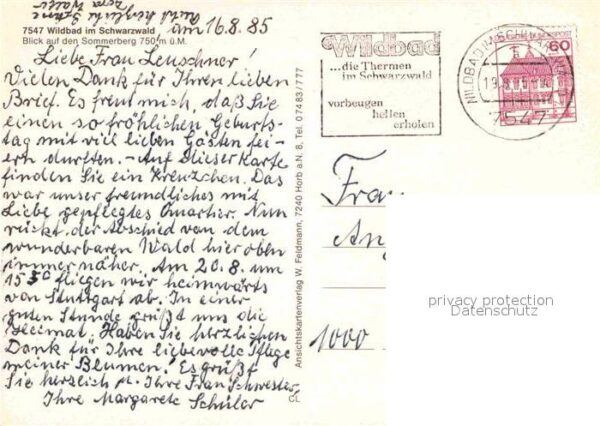 7547 Wildbad im Schwarzwald
Blick auf den Sommerberg 750 m ü.M.
am 16.8.85
Liebe Frau Leuschner!
Vielen Dank für Ihren lieben
Brief. Es freut mich, daß Sie
einen so fröhlichen Geburts-
tag mit viel lieben Gästen fei-
ern durften. - Auf dieser Karte
finden Sie ein Kreuzchen. Das
war unser freundliches mit
Liebe gepflegtes Quartier. Nun
rückt der Abschied von dem
wunderbaren Wald hier oben
immer näher. Am 20.8. um
15³⁰ fliegen wir heimwärts
von Stuttgart ab. In einer
guten Stunde grüßt uns die
Heimat. Haben Sie herzlichen
Dank für Ihre liebevolle Pflege
meiner Blumen. Es grüßt
Sie herzlich u. Ihre Frau Schwester,
Ihre Margarete Schüler
CL
Ansichtskartenverlag W. Feldmann, 7240 Horb a.N. 8, Tel. 0 74 83 / 777
Wildbad
...die Thermen
im Schwarzwald
vorbeugen
helfen
erholen
7547
60
Frau
1000
privacy protection
Datenschutz